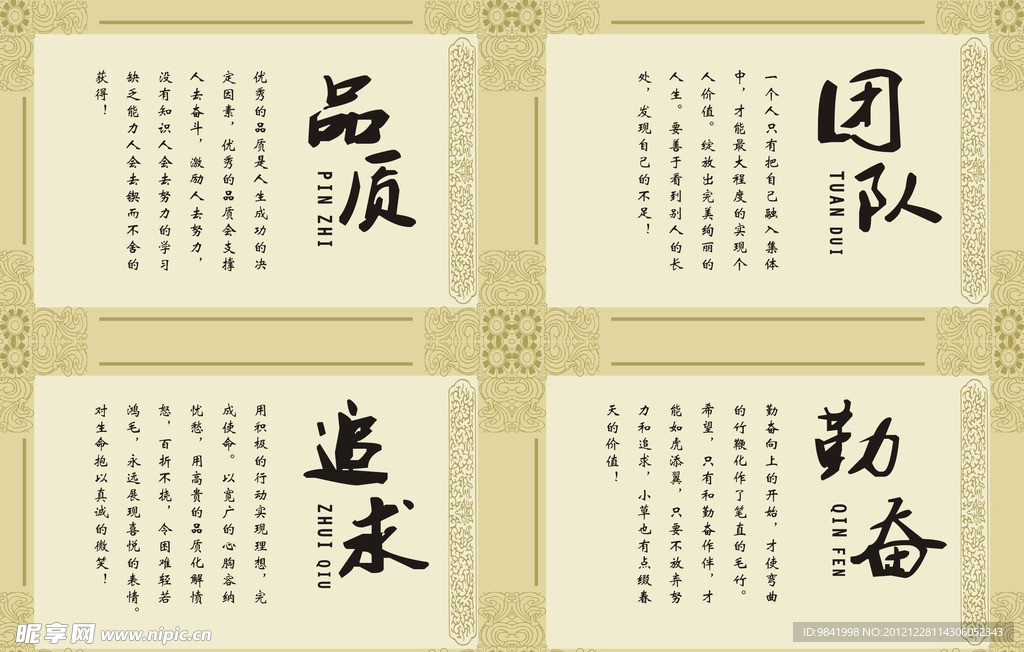 品质
PIN ZHI
优秀的品质是人生成功的决
定因素，优秀的品质会支撑
人去奋斗，激励人去努力，
没有知识人会去努力的学习
缺乏能力人会去锲而不舍的
获得！
团队
TUAN DUI
一个人只有把自己融入集体
中，才能最大程度的实现个
人价值。绽放出完美绚丽的
人生。要善于看到别人的长
处，发现自己的不足！
追求
ZHUI QIU
用积极的行动实现理想，完
成使命。以宽广的心胸容纳
忧愁，用高贵的品质化解愤
怒，百折不挠，令困难轻若
鸿毛，永远展现喜悦的表情。
对生命抱以真诚的微笑！
勤奋
QIN FEN
勤奋向上的开始，才使弯曲
的竹鞭化作了笔直的毛竹。
希望，只有和勤奋作伴，才
能如虎添翼，只要不放弃努
力和追求，小草也有点缀春
天的价值！
昵享网 www.nipic.cn
ID:9841998 NO:20121228114306052343